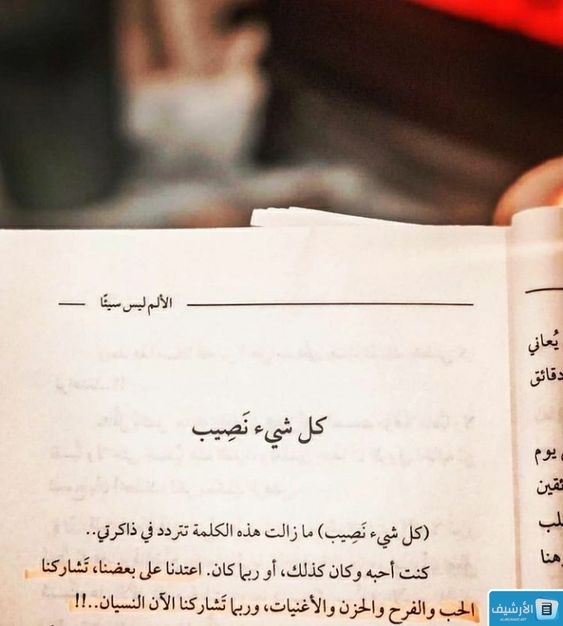 الألم ليس سيئًا
كل شيء نَصِيب
(كل شيء نَصِيب) ما زالت هذه الكلمة تتردد في ذاكرتي..
كنت أحبه وكان كذلك، أو ربما كان. اعتدنا على بعضنا، تَشاركنا
الحب والفرح والحزن والأغنيات، وربما تَشاركنا الآن النسيان..!!
يُعاني
دقائق
يوم
هنا
الأرشيف